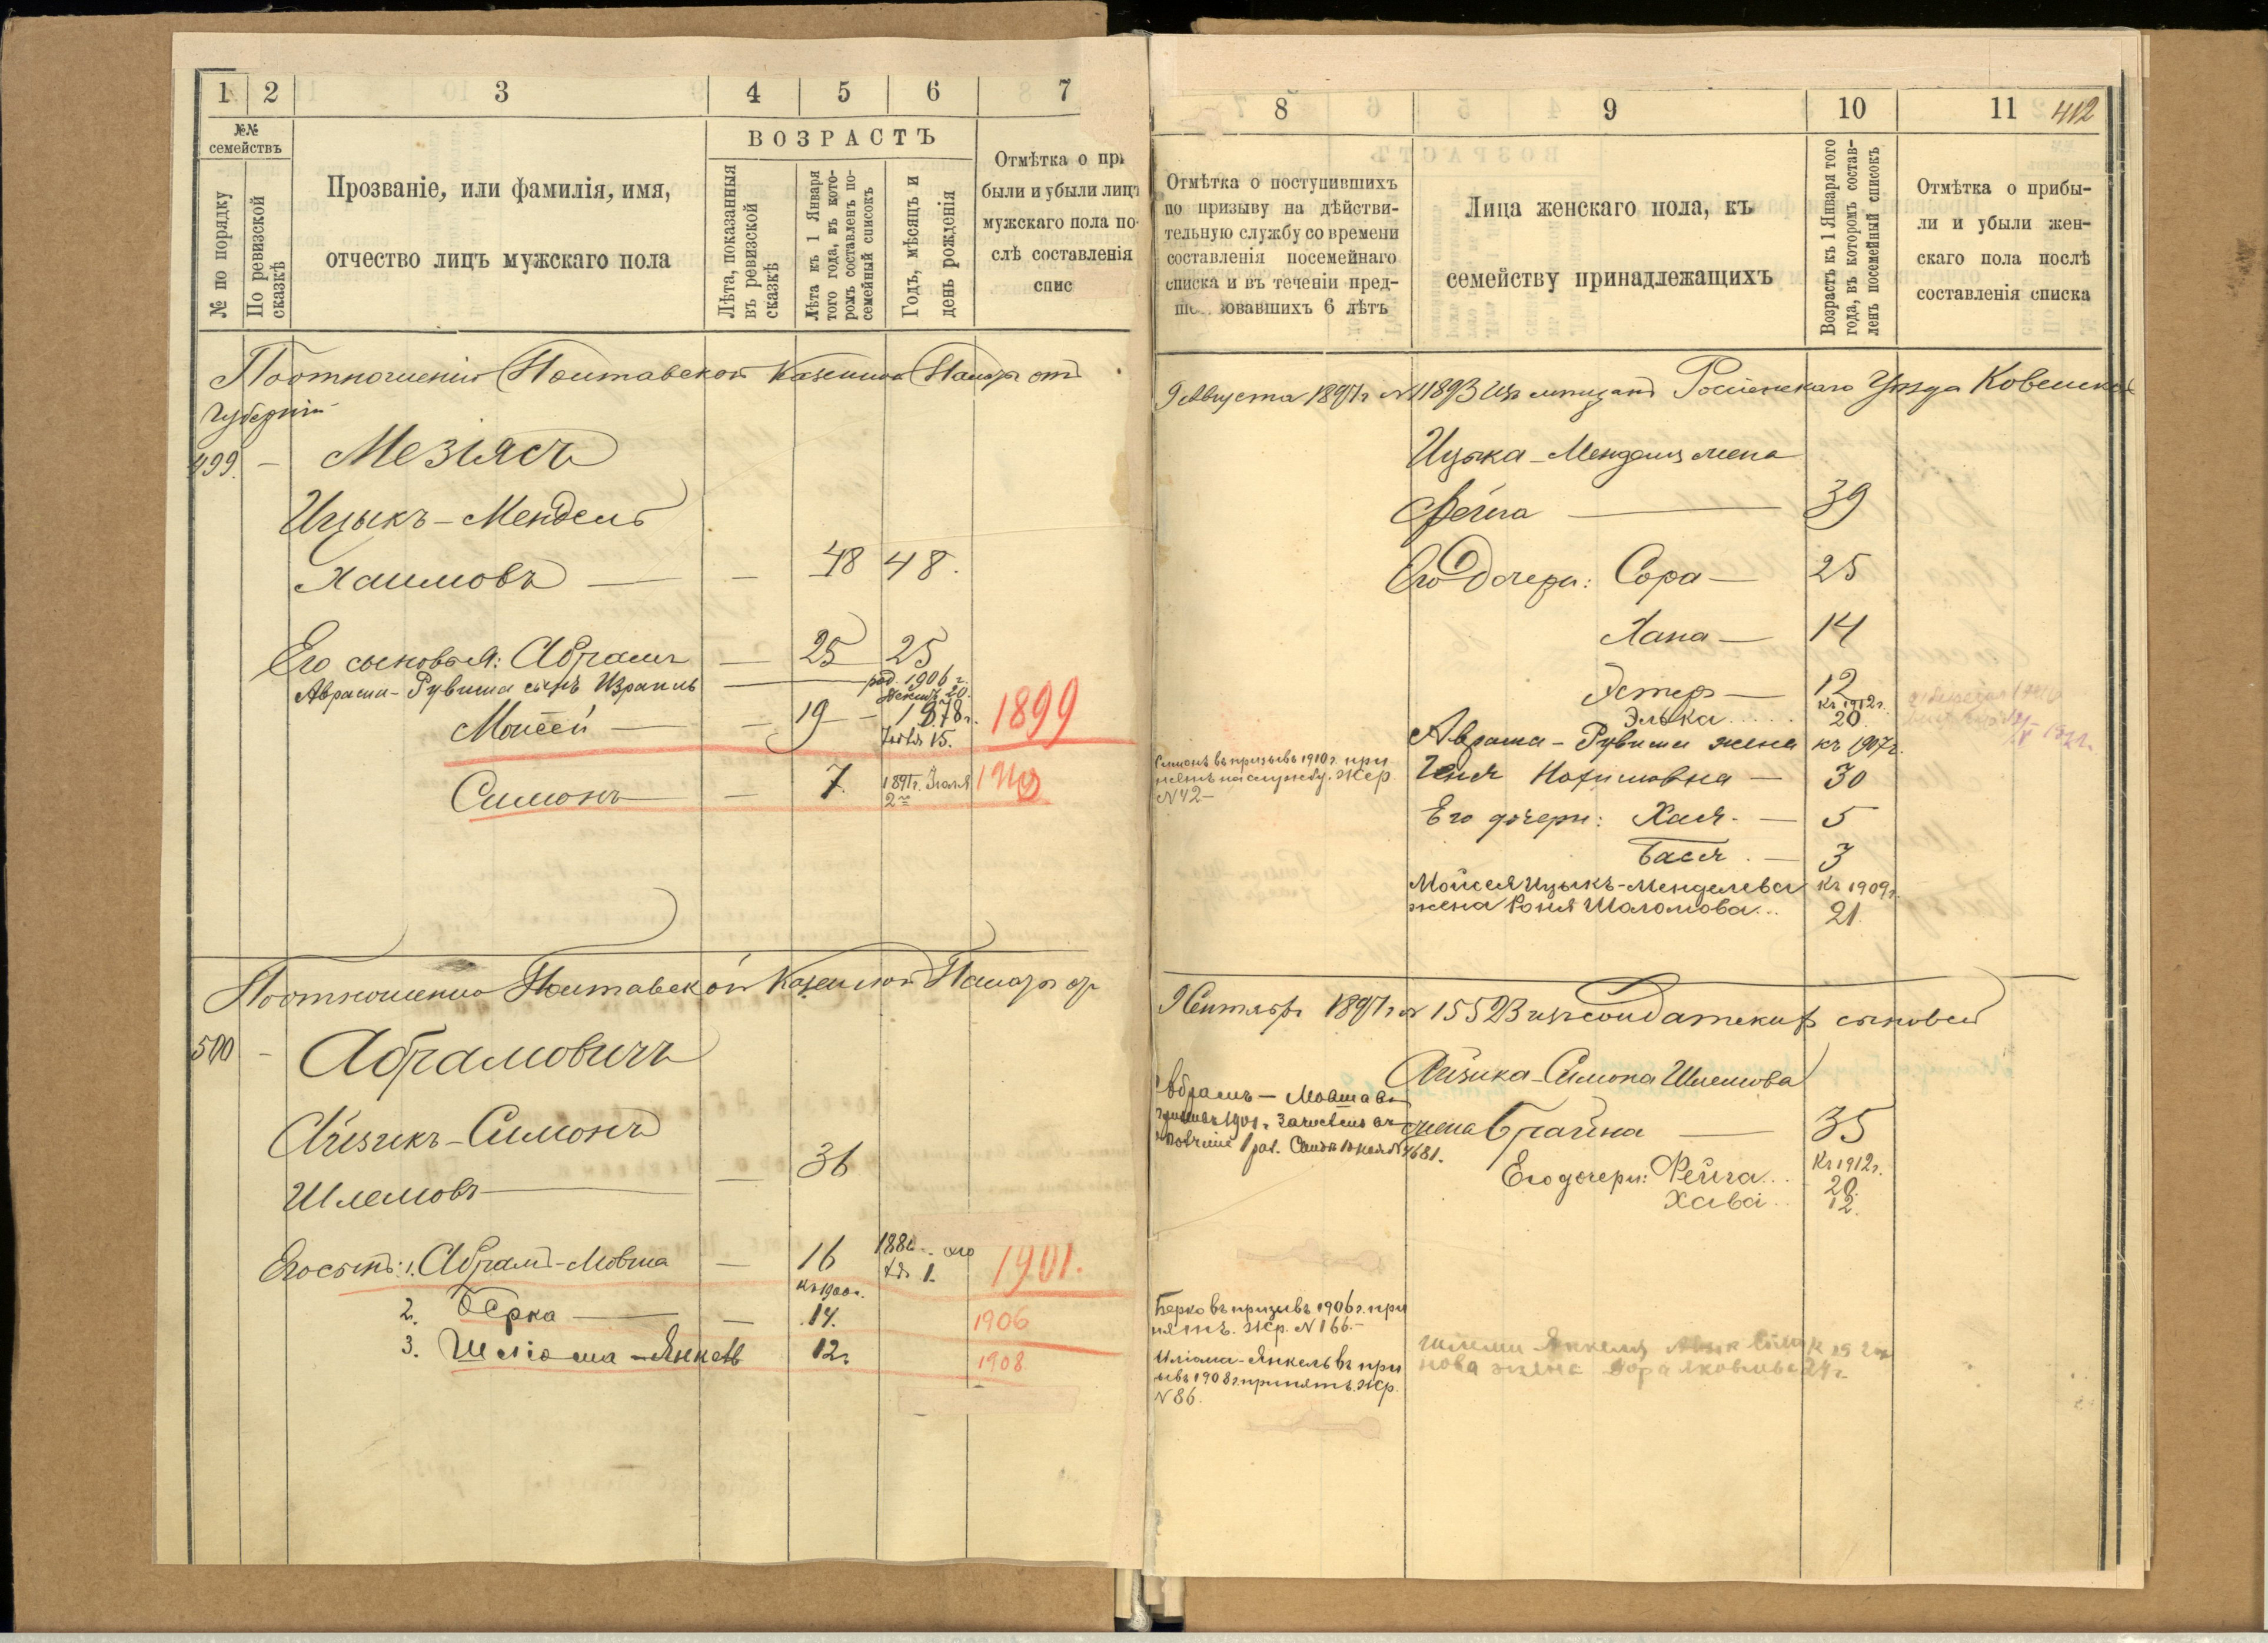 1 2 3 4 5 6 7
№№ семействъ
ВОЗРАСТЪ
№ по порядку
По ревизской сказкѣ
Прозваніе, или фамилія, имя,
отчество лицъ мужскаго пола
Лѣта, показанныя
въ ревизской
сказкѣ
Лѣта къ 1 Января
того года, въ кото-
ромъ составленъ по-
семейный списокъ
Годъ, мѣсяцъ и
день рожденія
Отмѣтка о при
были и убыли лицъ
мужскаго пола по
слѣ составленія
спис
По отношенію Полтавской Казенной Палаты отъ
губерніи
499 – Мезіясъ
Ицыкъ-Мендель
Хаимовъ — – 48 48.
Его сыновья: Абрамъ — 25 25
Аврама-Рувима сынъ Израиль — род. 1906 г.
20.
Моисей — – 19 – 1878 г. 1899
15.
Симонъ — – 7. 1891 г. Іюля
2
По отношенію Полтавской Казенной Палаты от
500 – Абрамовичъ
Айзикъ-Симонъ
Шлемовъ — — 36
Его сынъ: 1. Абрамъ-Мовша — 16 1901.
1.
къ 1900 г.
2. Берка — — 14. 1906
3. Шліома-Янкель 12. 1908
8 9 10 11 412
Отмѣтка о поступившихъ
по призыву на дѣйстви-
тельную службу со времени
составленія посемейнаго
списка и въ теченіи пред-
ше зовавшихъ 6 лѣтъ
Лица женскаго пола, къ
семейству принадлежащихъ
Возрастъ къ 1 Января того
года, въ которомъ состав-
ленъ посемейный списокъ
Отмѣтка о прибы-
ли и убыли жен-
скаго пола послѣ
составленія списка
9 Августа 1897 г № 11893 изъ мѣщанъ Россіенскаго Уѣзда Ковенской
Ицыка-Менделя жена
Фейга — 39
Его дочери: Сора — 25
Хана — 14
Эстер — 12
къ 1912 г.
Элька..... 20.
Аврама-Рувима жена къ 1907 г.
Геня Нохимовна — 30
Симонъ въ призывъ 1910 г. при
нятъ на службу. Жер
№ 42 –
Его дочери: Хая. — 5
Бася. — 3
Мойсея Ицыкъ-Менделева къ 1909 г.
жена Роня Шоломова... 21.
9 Сентябр 1897 г № 15523 изъ солдатскихъ сыновей
Айзика-Симона Шлемова
жена Брайна — 35
Абрамъ-Мовша въ
1901 г. зачисленъ въ
ополченіе 1 раз. № 4681.
къ 1912 г.
Его дочери: Фейга... 20.
Хава.. 12.
Берко въ призывъ 1906 г. при
нятъ. Жер. № 166.–
Шліома-Янкель въ при
ывъ 1908 г. принятъ. Жер.
№ 86.
Шлемы Янкеля
нова жена Дора Яковлева 24 г.